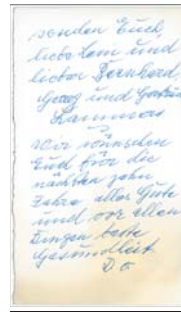 senden Euch,
liebe und
lieber Bernhard,
Georg und
wir wünschen
Euch für die
nächsten zehn
Jahre alles Gute
und vor allen
Dingen beste
Gesundheit
D. O.